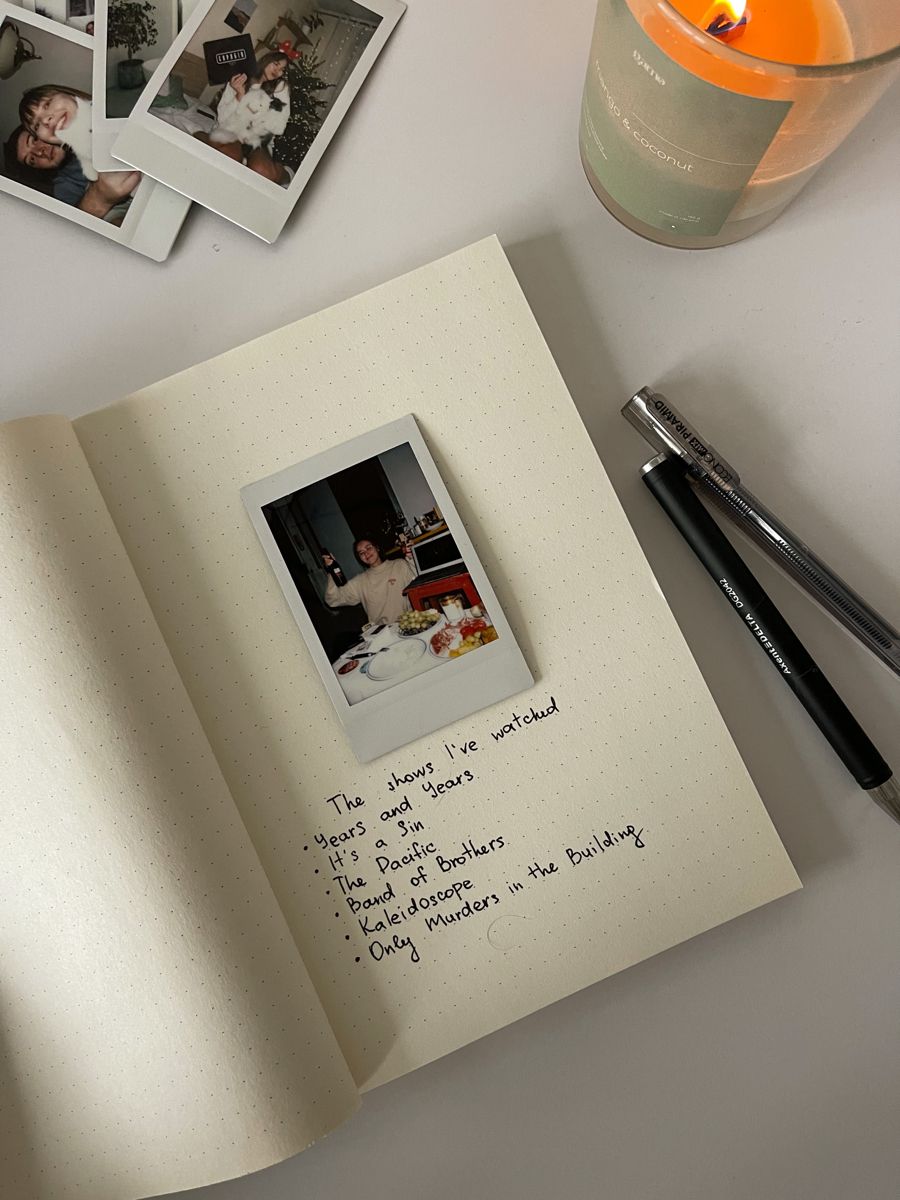 mango & coconut
PIRAMID
AXENT≡DELTA DG2042
The shows I've watched
• Years and Years
• It's a Sin
• The Pacific
• Band of Brothers
• Kaleidoscope
• Only Murders in the Building